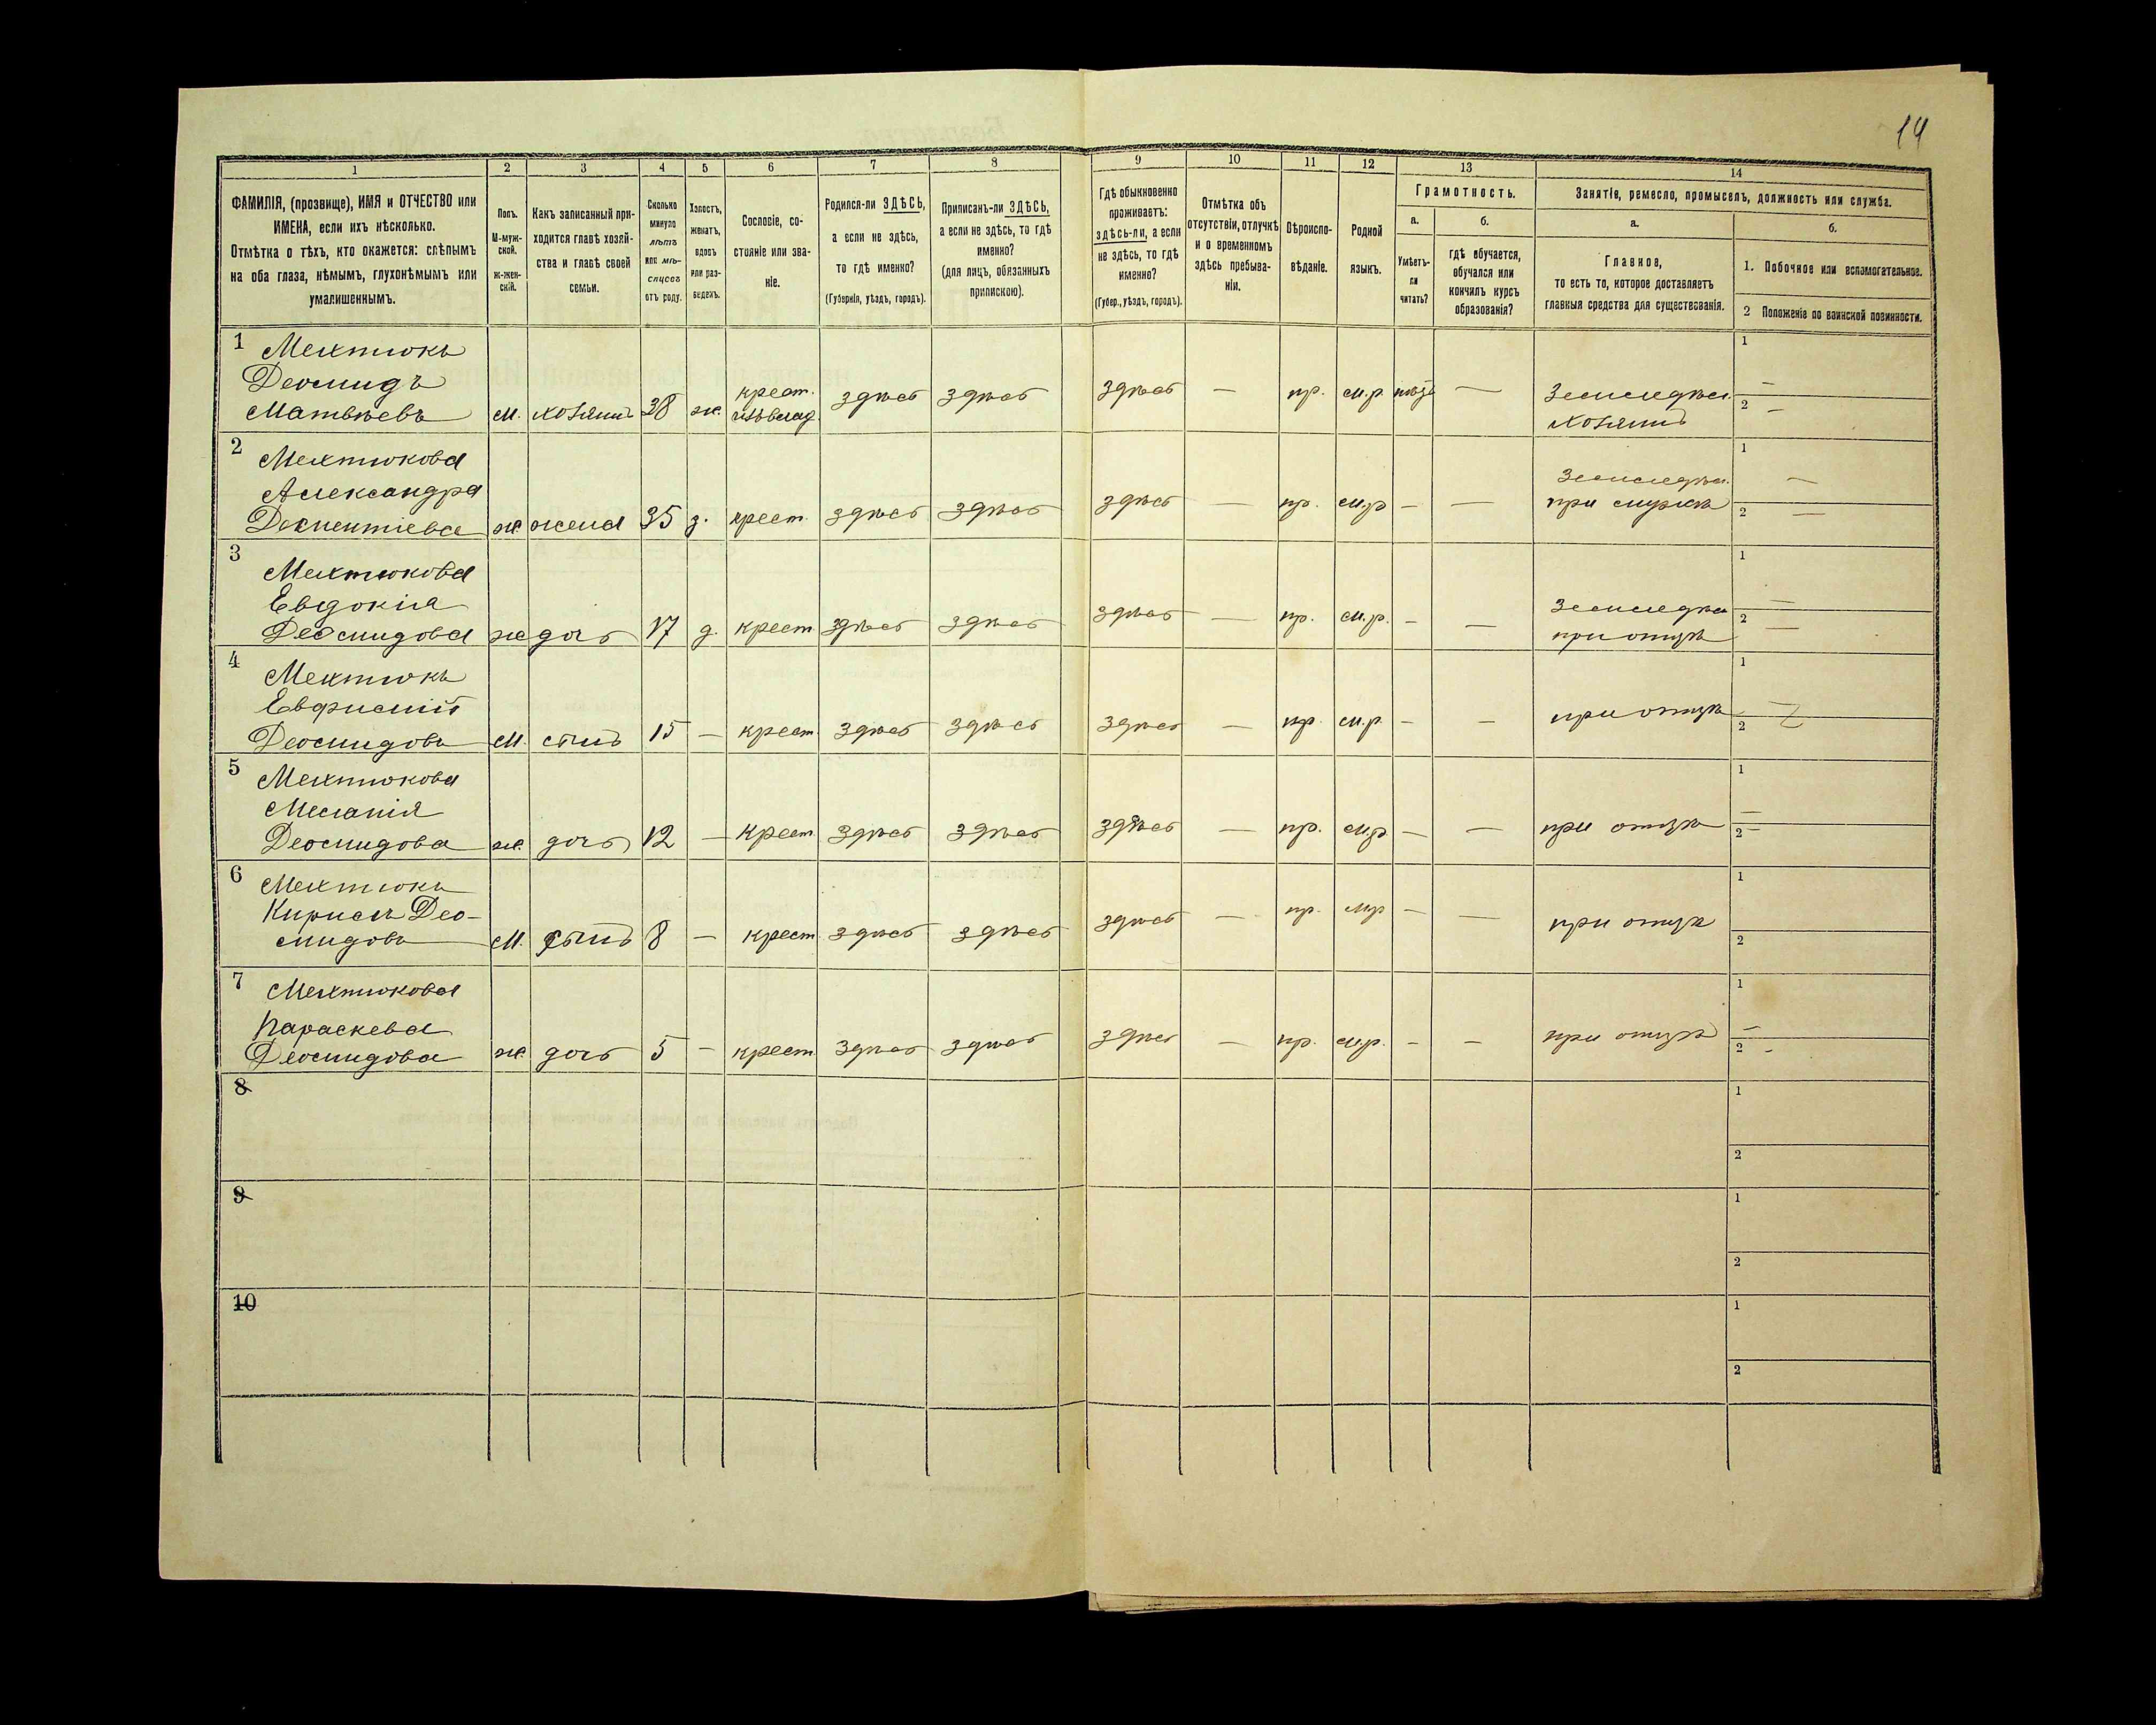 14
1
2
3
4
5
6
7
8
9
10
11
12
13
14
ФАМИЛІЯ, (прозвище), ИМЯ и ОТЧЕСТВО или
ИМЕНА, если ихъ нѣсколько.
Отмѣтка о тѣхъ, кто окажется: слѣпымъ
на оба глаза, нѣмымъ, глухонѣмымъ или
умалишеннымъ.
Полъ.
М-муж-
ской.
ж-жен-
скій.
Какъ записанный при-
ходится главѣ хозяй-
ства и главѣ своей
семьи.
Сколько
минуло
лѣтъ
или мѣ-
сяцевъ
отъ роду.
Холостъ,
женатъ,
вдовъ
или раз-
веденъ.
Сословіе, со-
стояніе или зва-
ніе.
Родился-ли ЗДѢСЬ,
а если не здѣсь,
то гдѣ именно?
(Губернія, уѣздъ, городъ).
Приписанъ-ли ЗДѢСЬ,
а если не здѣсь, то гдѣ
именно?
(для лицъ, обязанныхъ
припискою).
Гдѣ обыкновенно
проживаетъ:
здѣсь-ли, а если
не здѣсь, то гдѣ
именно?
(Губер., уѣздъ, городъ).
Отмѣтка объ
отсутствіи, отлучкѣ
и о временномъ
здѣсь пребыва-
ніи.
Вѣроиспо-
вѣданіе.
Родной
языкъ.
Грамотность.
а.
Умѣетъ-
ли
читать?
б.
гдѣ обучается,
обучался или
кончилъ курсъ
образованія?
Занятіе, ремесло, промыселъ, должность или служба.
а.
Главное,
то есть то, которое доставляетъ
главныя средства для существованія.
б.
1. Побочное или вспомогательное.
2 Положеніе по воинской повинности.
1
Мехтюкъ
Деомидъ
Матвѣевъ
м. хозяинъ 38 ж. крест.
здѣсь здѣсь здѣсь — пр. м.р. —
Земледѣл.
хозяинъ
1 —
2 —
2
Мехтюкова
Александра
ж. жена 35 з. крест. здѣсь здѣсь здѣсь — пр. м.р — —
Земледѣл.
при мужѣ
1 —
2 —
3
Мехтюкова
Евдокія
Деомидова ж дочь 17 д. крест. здѣсь здѣсь здѣсь — пр. м.р. — —
Земледѣл
при отцѣ
1 —
2 —
4
Мехтюкъ
Евфимій
Деомидовъ м. сынъ 15 — крест. здѣсь здѣсь здѣсь — пр. м.р. — — при отцѣ
1 —
2
5
Мехтюкова
Меланія
Деомидова ж. дочь 12 — крест. здѣсь здѣсь здѣсь — пр. м.р — — при отцѣ
1 —
2 —
6
Мехтюкъ
Кирилъ Део-
мидовъ м. сынъ 8 — крест. здѣсь здѣсь здѣсь — пр. мр — — при отцѣ
1
2
7
Мехтюкова
Параскева
Деомидова ж. дочь 5 — крест. здѣсь здѣсь здѣсь — пр. м.р. — — при отцѣ
1 —
2 -
8
1
2
9
1
2
10
1
2